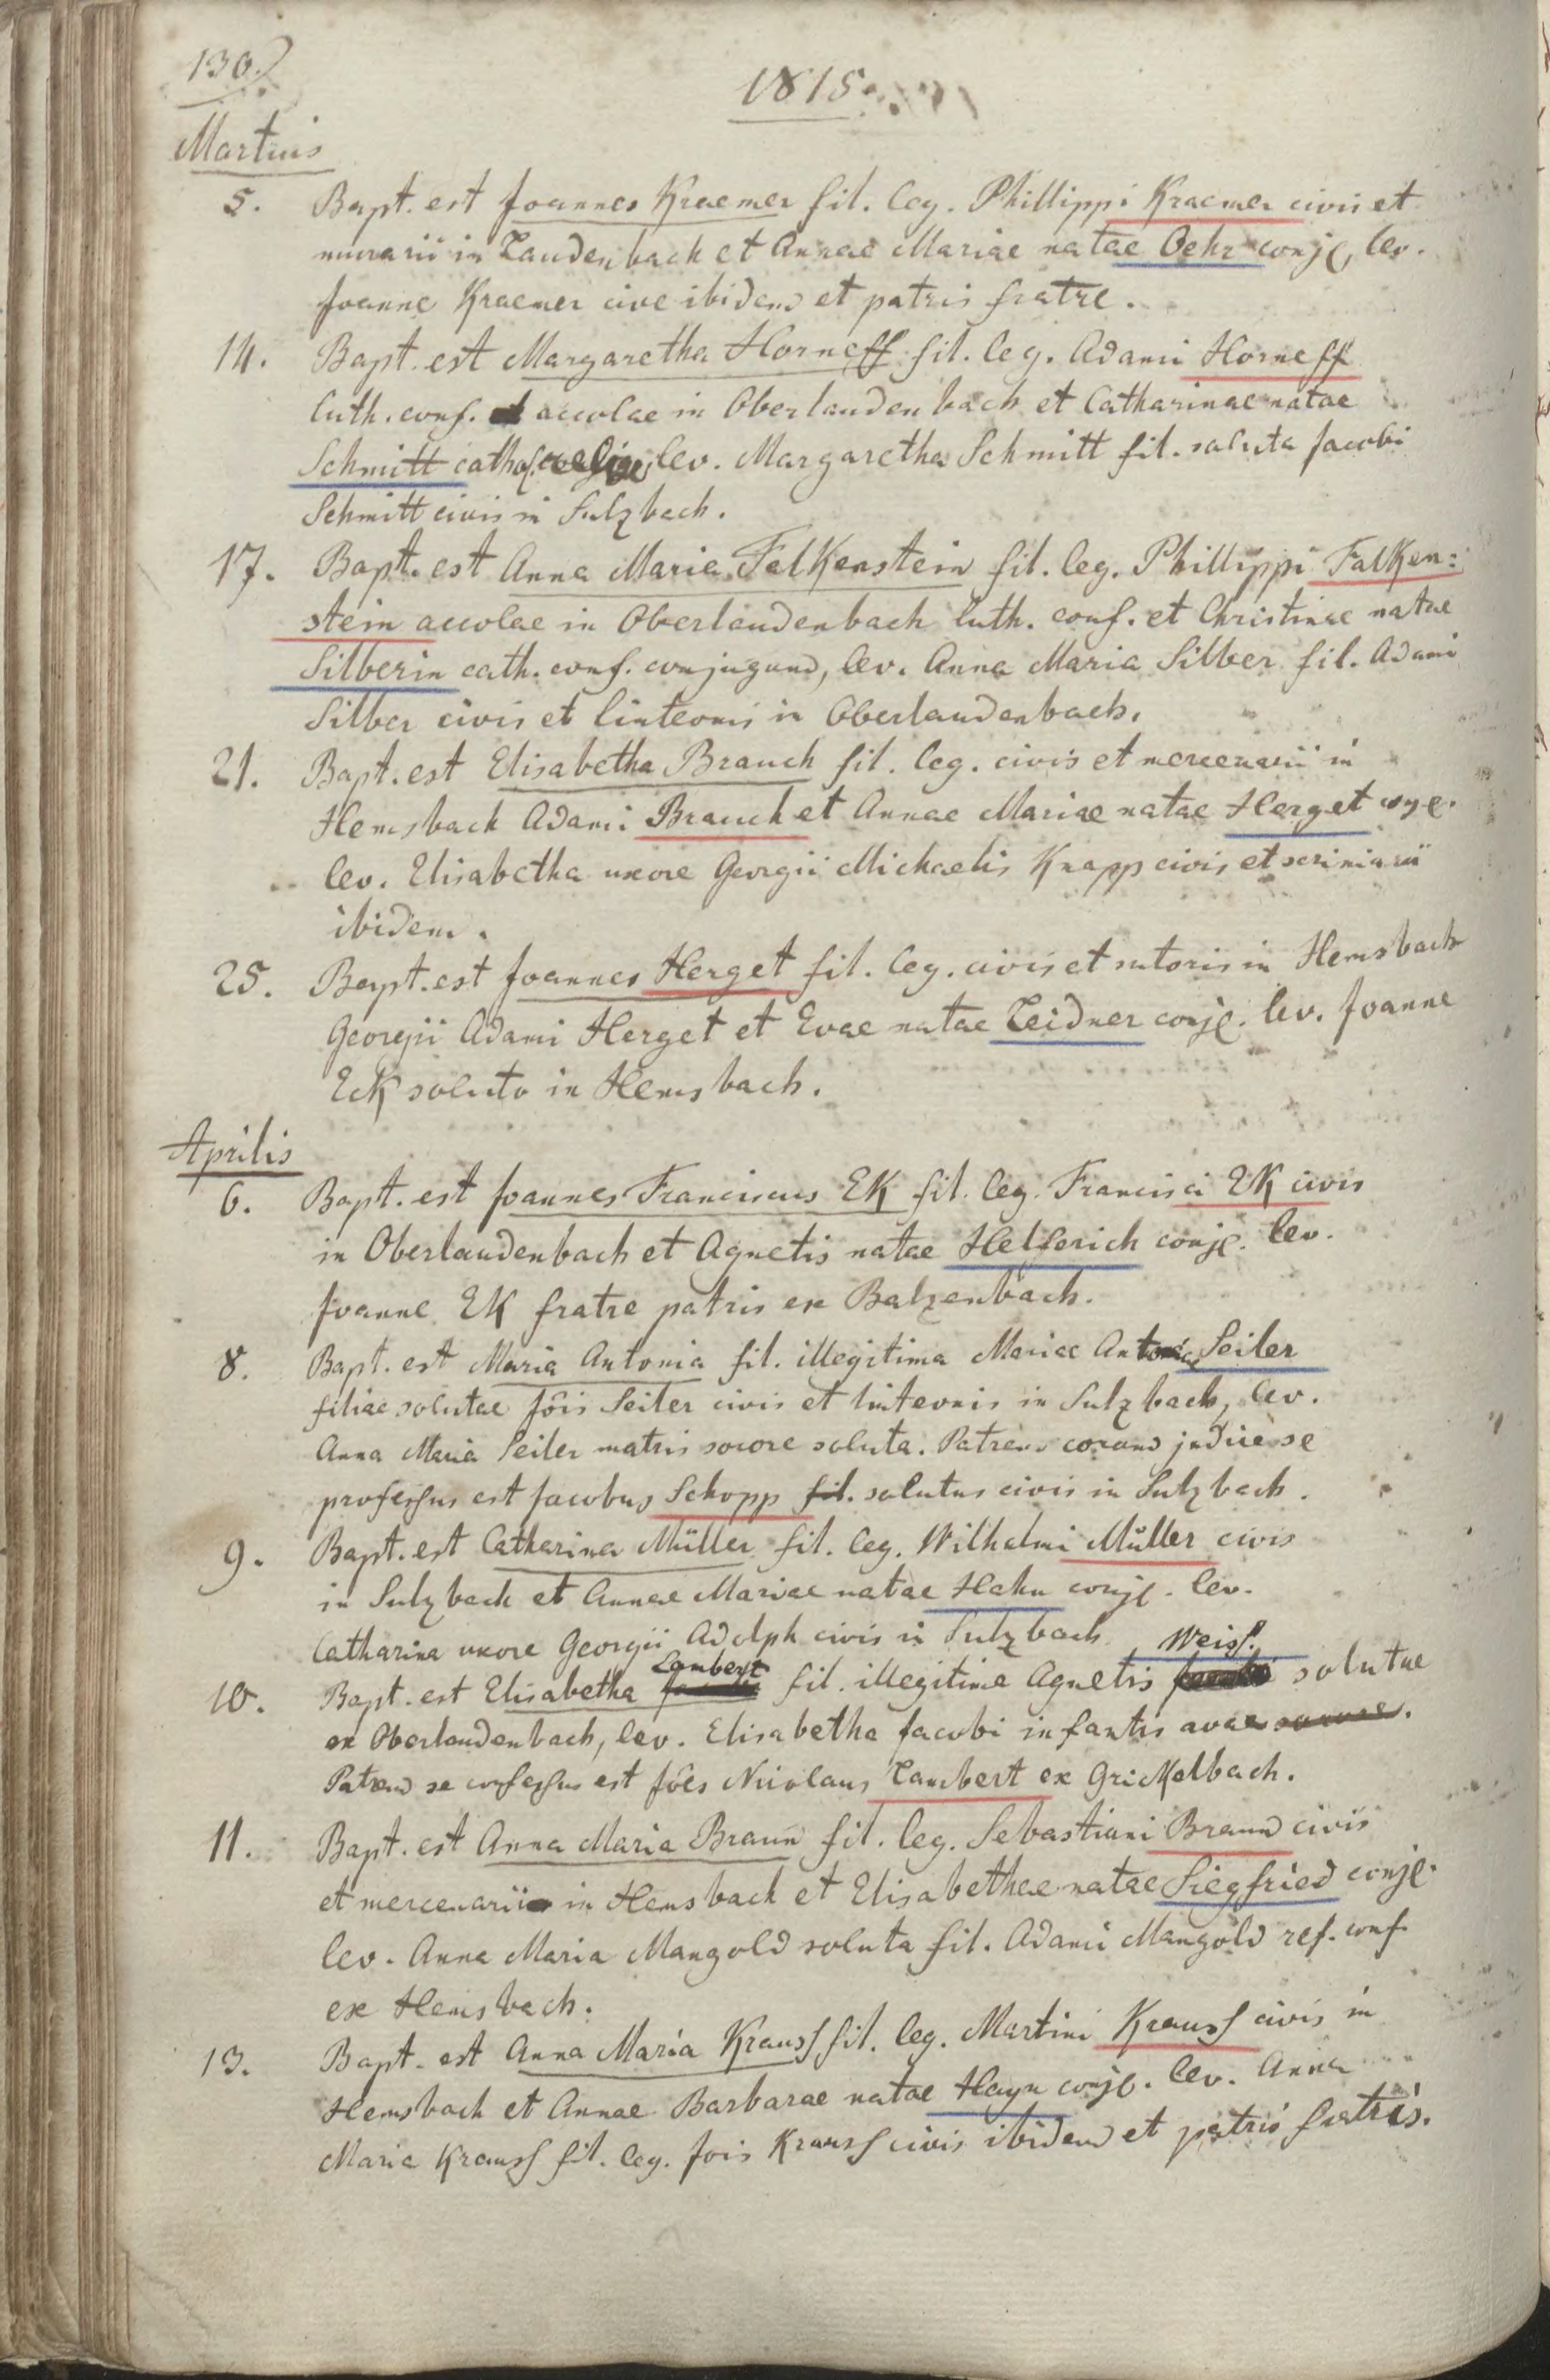 130.
1815.
Martius
5. Bapt. est Joannes Kraemer fil. leg. Phillippi Kraemer civis et
murarii in Laudenbach et Annae Mariae natae Oehr conj., lev.
Joanne Kraemer cive ibidem et patris fratre.
14. Bapt. est Margaretha Horneff fil. leg. Adami Horneff
luth. conf. accolae in Oberlaudenbach et Catharinae natae
Schmitt cathol. relig. lev. Margaretha Schmitt fil. soluta Jacobi
Schmitt civis in Sulzbach.
17. Bapt. est Anna Maria Falkenstein fil. leg. Phillippi Falken:
stein accolae in Oberlaudenbach luth. conf. et Christinae natae
Silberin cath. conf. conjugum, lev. Anna Maria Silber fil. Adami
Silber civis et linteonis in Oberlaudenbach.
21. Bapt. est Elisabetha Brauch fil. leg. civis et mercenarii in
Hemsbach Adami Brauch et Annae Mariae natae Herget conj.
lev. Elisabetha uxore Georgii Michaelis Knapp civis et scriniarii
ibidem.
25. Bapt. est Joannes Herget fil. leg. civis et sutoris in Hemsbach
Georgii Adami Herget et Evae natae Leidner conj. lev. Joanne
Eck soluto in Hemsbach.
Aprilis
6. Bapt. est Joannes Franciscus Ek fil. leg. Francisci Ek civis
in Oberlaudenbach et Agnetis natae Helferich conj. lev.
Joanne Ek fratre patris ex Balzenbach.
8. Bapt. est Maria Antonia fil. illegitima Mariae Antoniae Seiler
filiae solutae Jois Seiler civis et linteonis in Sulzbach, lev.
Anna Maria Seiler matris sorore soluta. Patrem coram judice se
professus est Jacobus Schopp fil. solutus civis in Sulzbach.
9. Bapt. est Catharina Müller fil. leg. Wilhelmi Müller civis
in Sulzbach et Annae Mariae natae Hahn conj. lev.
Catharina uxore Georgii Adolph civis in Sulzbach.
Lambert Weiss.
10. Bapt. est Elisabetha fil. illegitima Agnetis solutae
ex Oberlaudenbach, lev. Elisabetha Jacobi infantis avae
Patrem se confessus est Jões Nicolaus Lambert ex Grickelbach.
11. Bapt. est Anna Maria Braun fil. leg. Sebastiani Braun civis
et mercenarii in Hemsbach et Elisabethae natae Siegfried conj.
lev. Anna Maria Mangold soluta fil. Adami Mangold ref. conf.
ex Hemsbach.
13. Bapt. est Anna Maria Krauss fil. leg. Martini Krauss civis in
Hemsbach et Annae Barbarae natae Hayn conj. lev. Anna
Maria Krauss fil. leg. Jois Krauss civis ibidem et patris fratris.